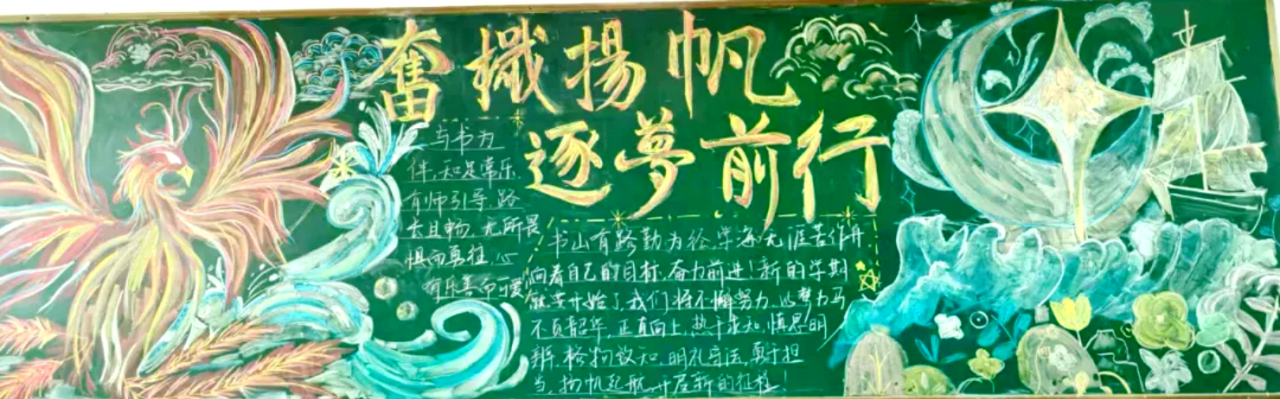 奮楫揚帆
逐夢前行
与书为
伴,知足常乐
有师引导,路
长且畅,无所畏
惧而勇往,心
有乐喜而可爱
书山有路勤为径,学海无涯苦作舟
向着自己的目标,奋力前进!新的学期
就要开始了,我们将不懈努力,以梦为马
不负韶华,正直向上,热于求知,慎思明
辨,格物致知,明礼守法,勇于担
当,扬帆起航,开启新的征程!